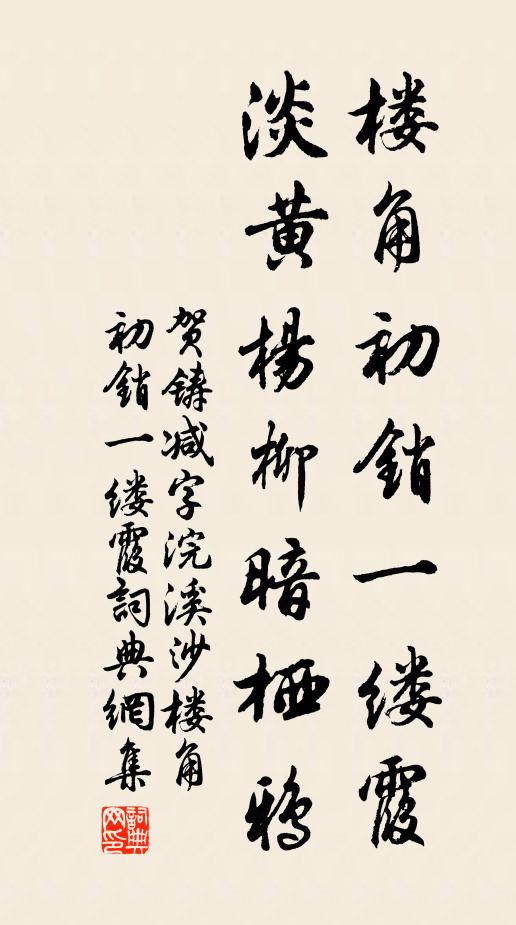 楼角初銷一缕霞
淡黄楊柳暗栖鸦
贺铸减字浣溪沙楼角
初銷一缕霞詞典網集
詞典
网印